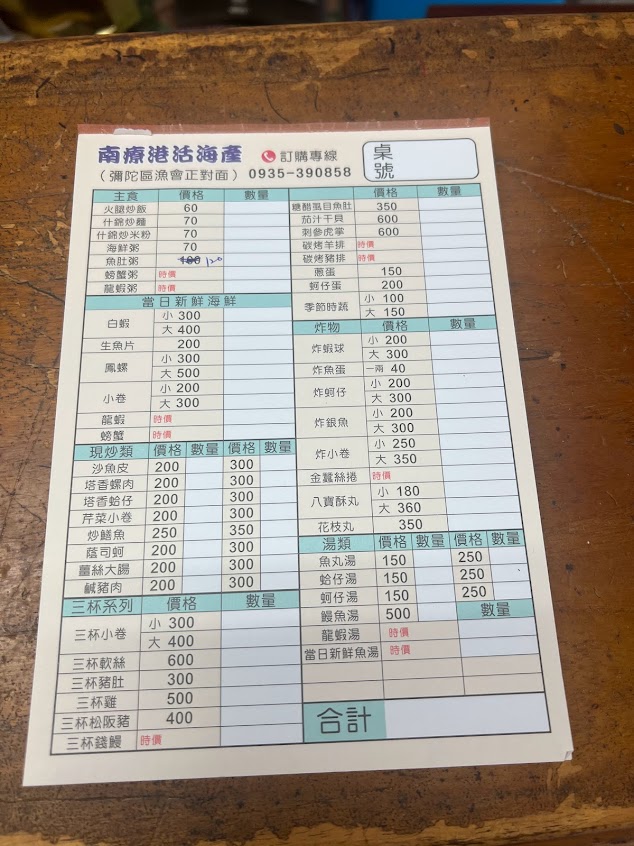 南療港活海產 訂購專線 桌號
（彌陀區漁會正對面）0935-390858
主食 價格 數量
火腿炒飯 60
什錦炒麵 70
什錦炒米粉 70
海鮮粥 70
魚肚粥 180 120
螃蟹粥 時價
龍蝦粥 時價
當日新鮮海鮮
白蝦 小 300
大 400
生魚片 200
鳳螺 小 300
大 500
小卷 小 200
大 300
龍蝦 時價
螃蟹 時價
現炒類 價格 數量 價格 數量
沙魚皮 200 300
塔香螺肉 200 300
塔香蛤仔 200 300
芹菜小卷 200 300
炒鱔魚 250 350
蔭司蚵 200 300
薑絲大腸 200 300
鹹豬肉 200 300
三杯系列 價格 數量
三杯小卷 小 300
大 400
三杯軟絲 600
三杯豬肚 300
三杯雞 500
三杯松阪豬 400
三杯錢鰻 時價
價格 數量
糖醋虱目魚肚 350
茄汁干貝 600
刺參虎掌 600
碳烤羊排 時價
碳烤豬排 時價
蔥蛋 150
蚵仔蛋 200
季節時蔬 小 100
大 150
炸物 價格 數量
炸蝦球 小 200
大 300
炸魚蛋 一兩 40
炸蚵仔 小 200
大 300
炸銀魚 小 200
大 300
炸小卷 小 250
大 350
金蠶絲捲 時價
八寶酥丸 小 180
大 360
花枝丸 350
湯類 價格 數量 價格 數量
魚丸湯 150 250
蛤仔湯 150 250
蚵仔湯 150 250
鰻魚湯 500 數量
龍蝦湯 時價
當日新鮮魚湯 時價
合計